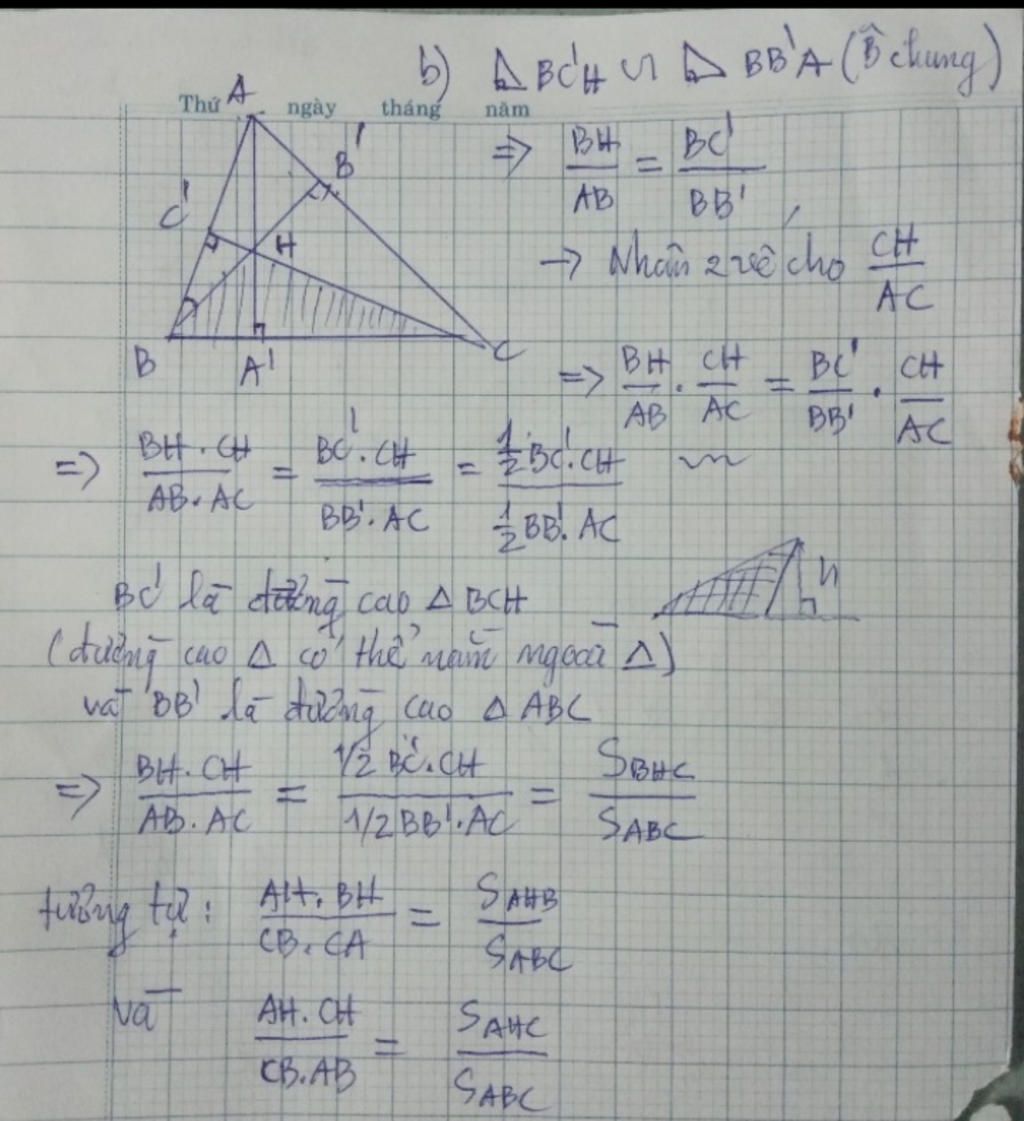 b) ⊿BC'H ∽ ⊿BB'A (B̂ chung)
Thứ ngày tháng năm
A
B'
C'
H
B
A'
C
=> BH/AB = BC'/BB'
-> Nhân 2 vế cho CH/AC
=> BH/AB . CH/AC = BC'/BB' . CH/AC
=> BH.CH/AB.AC = BC'.CH/BB'.AC = 1/2 BC'.CH/1/2 BB'.AC
h
BC' là đường cao △ BCH
(đường cao △ có thể nằm ngoài △)
và BB' là đường cao △ ABC
=> BH.CH/AB.AC = 1/2 BC'.CH/1/2 BB'.AC = SBHC/SABC
tương tự: AH.BH/CB.CA = SAHB/SABC
và AH.CH/CB.AB = SAHC/SABC